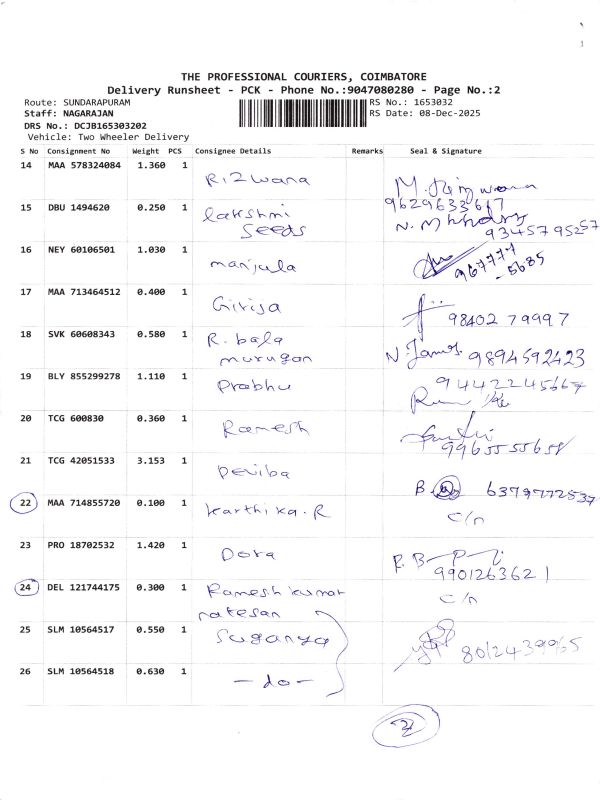 1
THE PROFESSIONAL COURIERS, COIMBATORE
Delivery Runsheet - PCK - Phone No.:9047080280 - Page No.:2
Route: SUNDARAPURAM
RS No.: 1653032
Staff: NAGARAJAN
RS Date: 08-Dec-2025
DRS No.: DCJB165303202
Vehicle: Two Wheeler Delivery
S No Consignment No Weight PCS Consignee Details Remarks Seal & Signature
14 MAA 578324084 1.360 1 Rizwana
9629633617
15 DBU 1494620 0.250 1 lakshmi
Seeds
93457 95257
16 NEY 60106501 1.030 1 manjula
967777
-5685
17 MAA 713464512 0.400 1 Girija
98402 79997
18 SVK 60608343 0.580 1 R. bala
murugan
9894592423
19 BLY 855299278 1.110 1 Prabhu
9442245667
20 TCG 600830 0.360 1 Ramesh
9965555658
21 TCG 42051533 3.153 1 Deviba
B. 6379772537
22 MAA 714855720 0.100 1 Karthika.R c/n
23 PRO 18702532 1.420 1 Dora
9901263621
24 DEL 121744175 0.300 1 Rameshkumar c/n
natesan
25 SLM 10564517 0.550 1 Suganya 8012439965
26 SLM 10564518 0.630 1 -do-
2